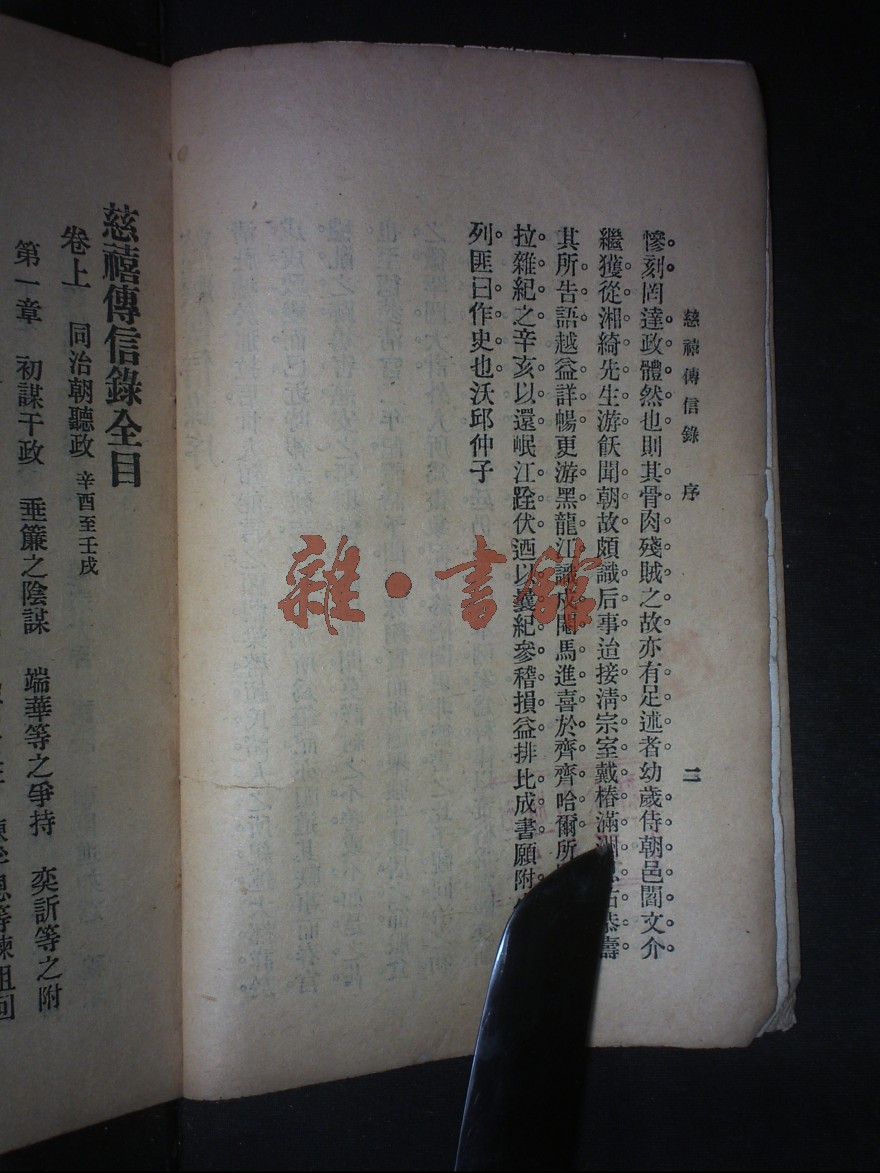 慈禧傳信錄　序　二
慘刻罔達政體然也則其骨肉殘賊之故亦有足述者幼歲侍朝邑閻文介
繼獲從湘綺先生游飫聞朝故頗識后事迨接淸宗室戴椿滿洲恭壽
其所告語越益詳暢更游黑龍江識成閹馬進喜於齊齊哈爾所
拉雜紀之辛亥以還岷江跧伏迺以曩紀參稽損益排比成書願附
列匪曰作史也沃邱仲子
慈禧傳信錄全目
卷上　同治朝聽政　辛酉至壬戌
第一章　初謀干政　垂簾之陰謀　端華等之爭持　奕訢等之附
雜·書館